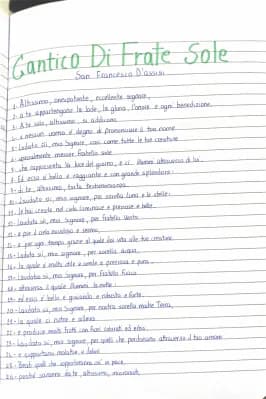 Cantico Di Frate Sole
San Francesco D'assisi
1- Altissimo, onnipotente, eccellente signore,
2- a te appartengono la lode, la gloria, l'onore e ogni benedizione.
3- A te solo, altissimo, si addicono
4- e nessun uomo è degno di pronunciare il tuo nome
5- Lodato sii, mio Signore, con tutte le tue creature
6- specialmente messer fratello sole
7- che rappresenta la luce del giorno, e ci illumini attraverso di lui.
8- Ed esso è bello e raggiante e con grande splendore:
9- di te, altissimo, porta testimonianza.
10- Laudato sii, mio signore, per sorella luna e le stelle:
11- le hai create nel cielo luminose e preziose e belle.
12- laudato sii, mio Signore, per fratello Vento
13- e per il cielo nuvoloso e sereno,
14- e per ogni tempo, grazie al quale dai vita alle tue creature.
15- Laudato sii, mio signore, per sorella acqua,
16- la quale è molto utile e umile e preziosa e pura
17- Laudato sii, mio Signore, per fratello fuoco
18- attraverso il quale illumini la notte:
19- ed esso è bello e giocondo e robusto e forte.
20- laudato sii, mio Signore, per nostra sorella madre Terra,
21- la quale ci nutre e alleva
22- e produce molti frutti con fiori colorati ed erba.
23- laudato sii, mio signore, per quelli che perdonano attraverso il tuo amore
24- e sopportano malattie e dolori
25- Beati quelli che sopporteranno ciò in pace
26- poiché saranno da te, altissimo, incoronati.